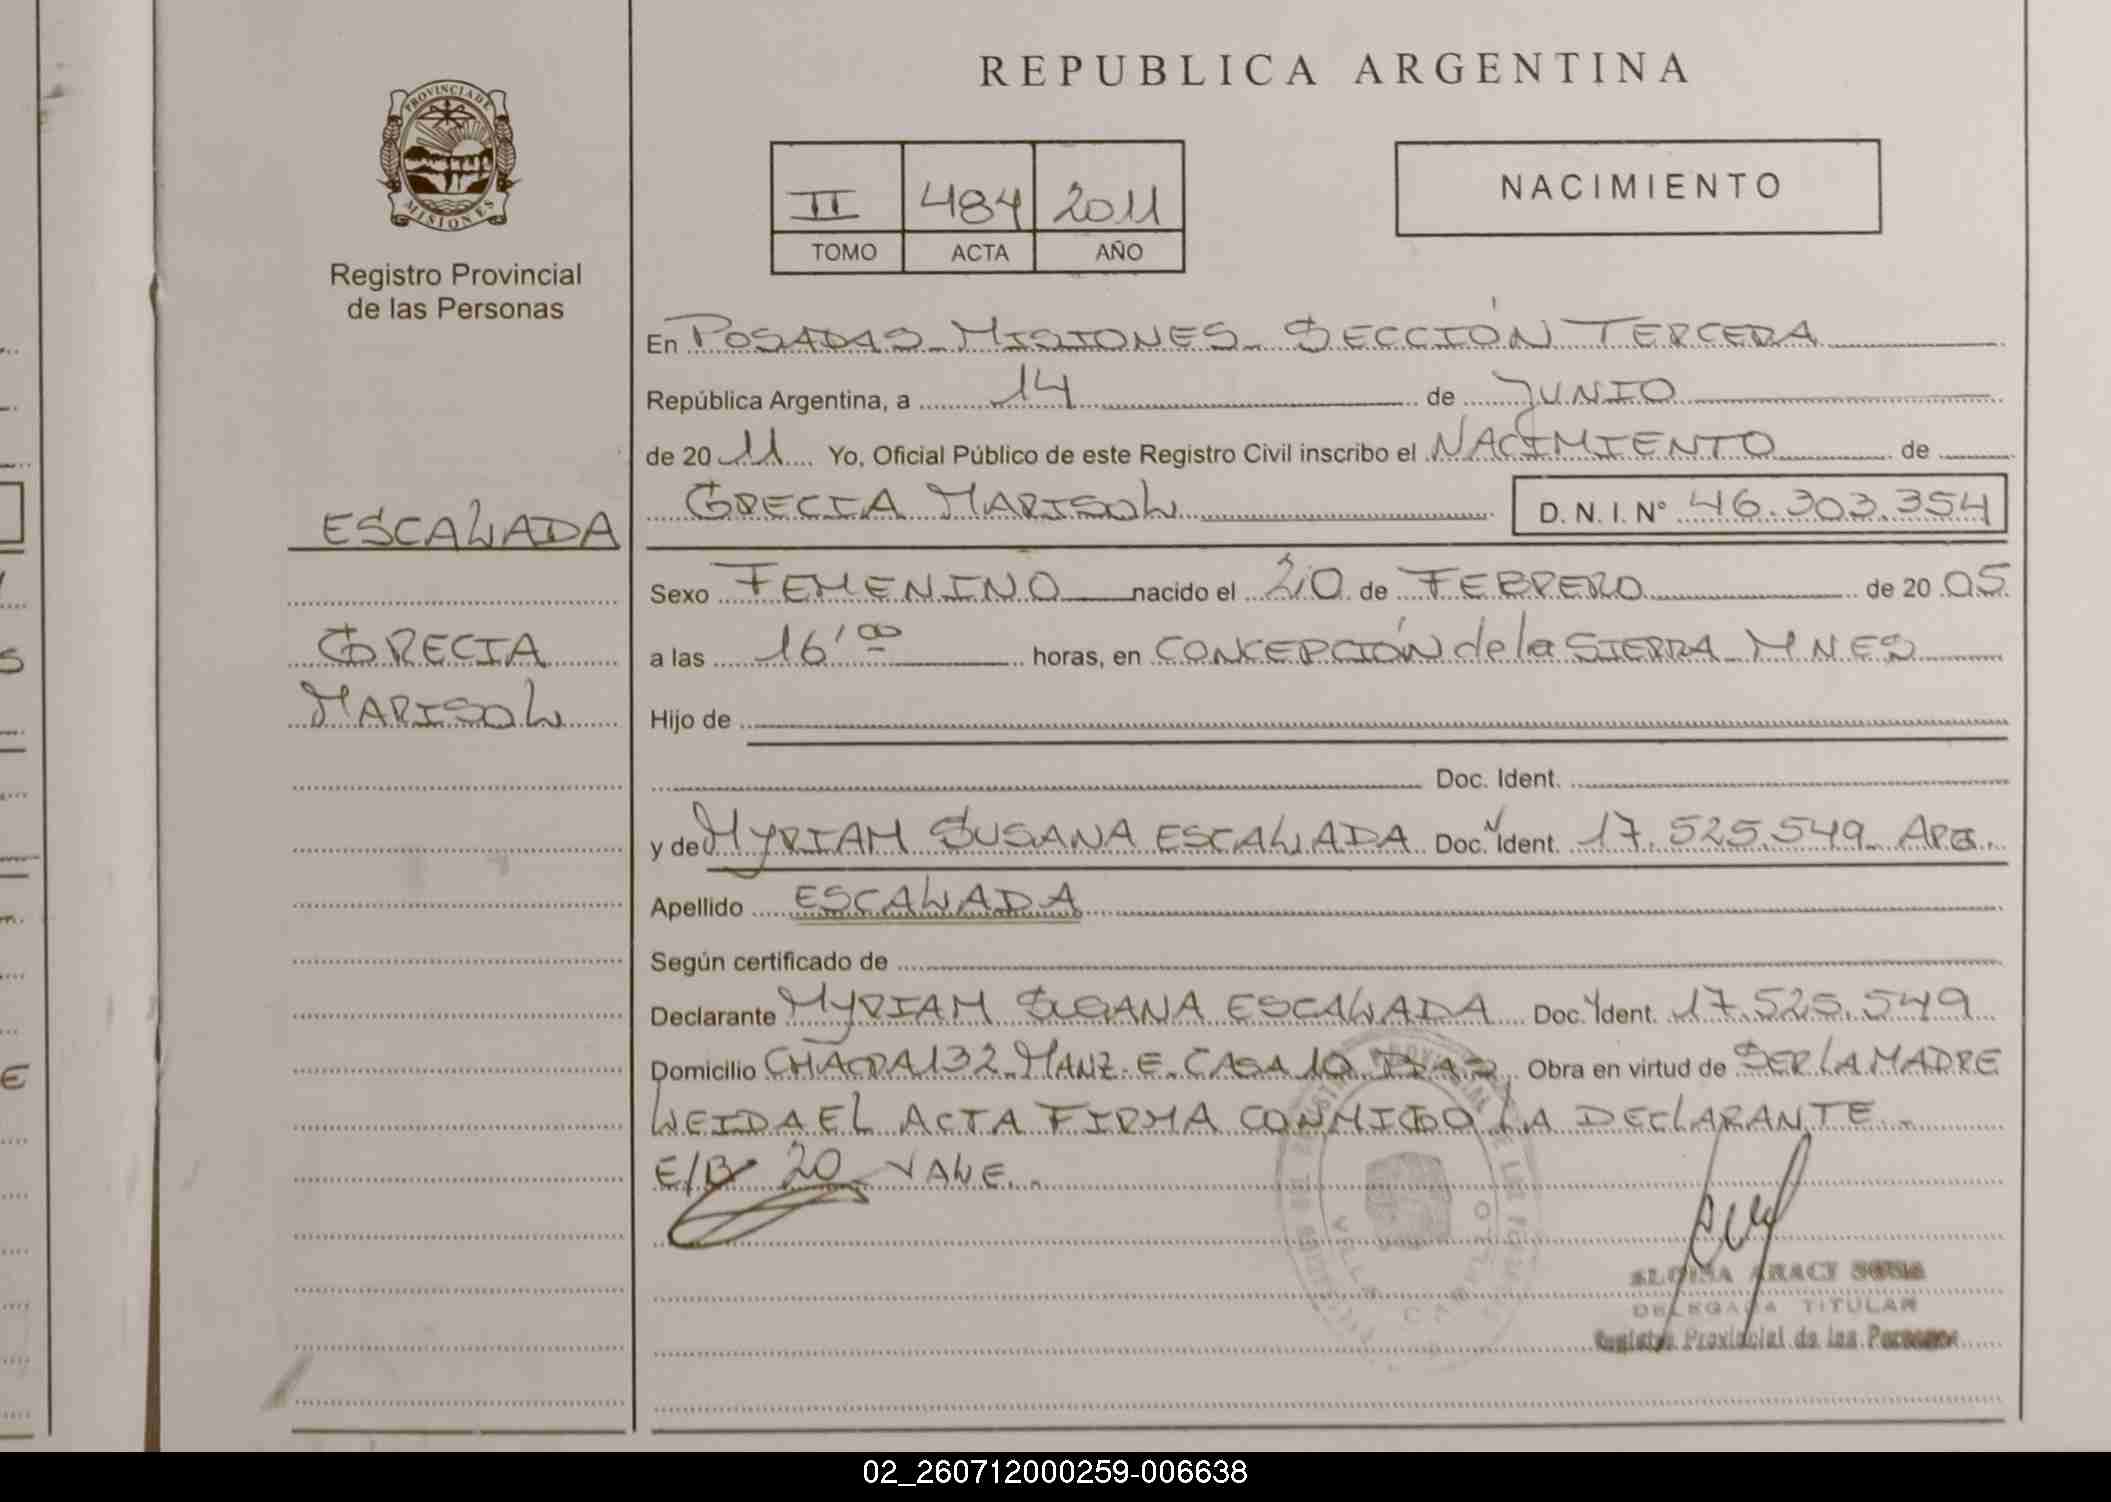 REPUBLICA ARGENTINA
PROVINCIA DE
MISIONES
Registro Provincial
de las Personas
II 484 2011
TOMO ACTA AÑO
NACIMIENTO
En POSADAS - MISIONES - SECCIÓN TERCERA
República Argentina, a 14 de JUNIO
de 20 11 Yo, Oficial Público de este Registro Civil inscribo el NACIMIENTO de
GRECIA MARISOL D. N. I. N° 46.303.354
ESCALADA
GRECIA
MARISOL
Sexo FEMENINO nacido el 20 de FEBRERO de 20 05
a las 16'00 horas, en CONCEPCIÓN de la SIERRA - MNES
Hijo de
Doc. Ident.
y de MYRIAM SUSANA ESCALADA Doc. Ident. 17.525.549 - ARG.
Apellido ESCALADA
Según certificado de
Declarante MYRIAM SUSANA ESCALADA Doc. Ident. 17.525.549
Domicilio CHACRA 132 - MANZ. E - CASA 10 Obra en virtud de SER LA MADRE
LEIDA EL ACTA FIRMA CONMIGO LA DECLARANTE.-
E/B 20 VALE.-
ARACY
DELEGADA TITULAR
Registro Provincial de las Personas
02_260712000259-006638